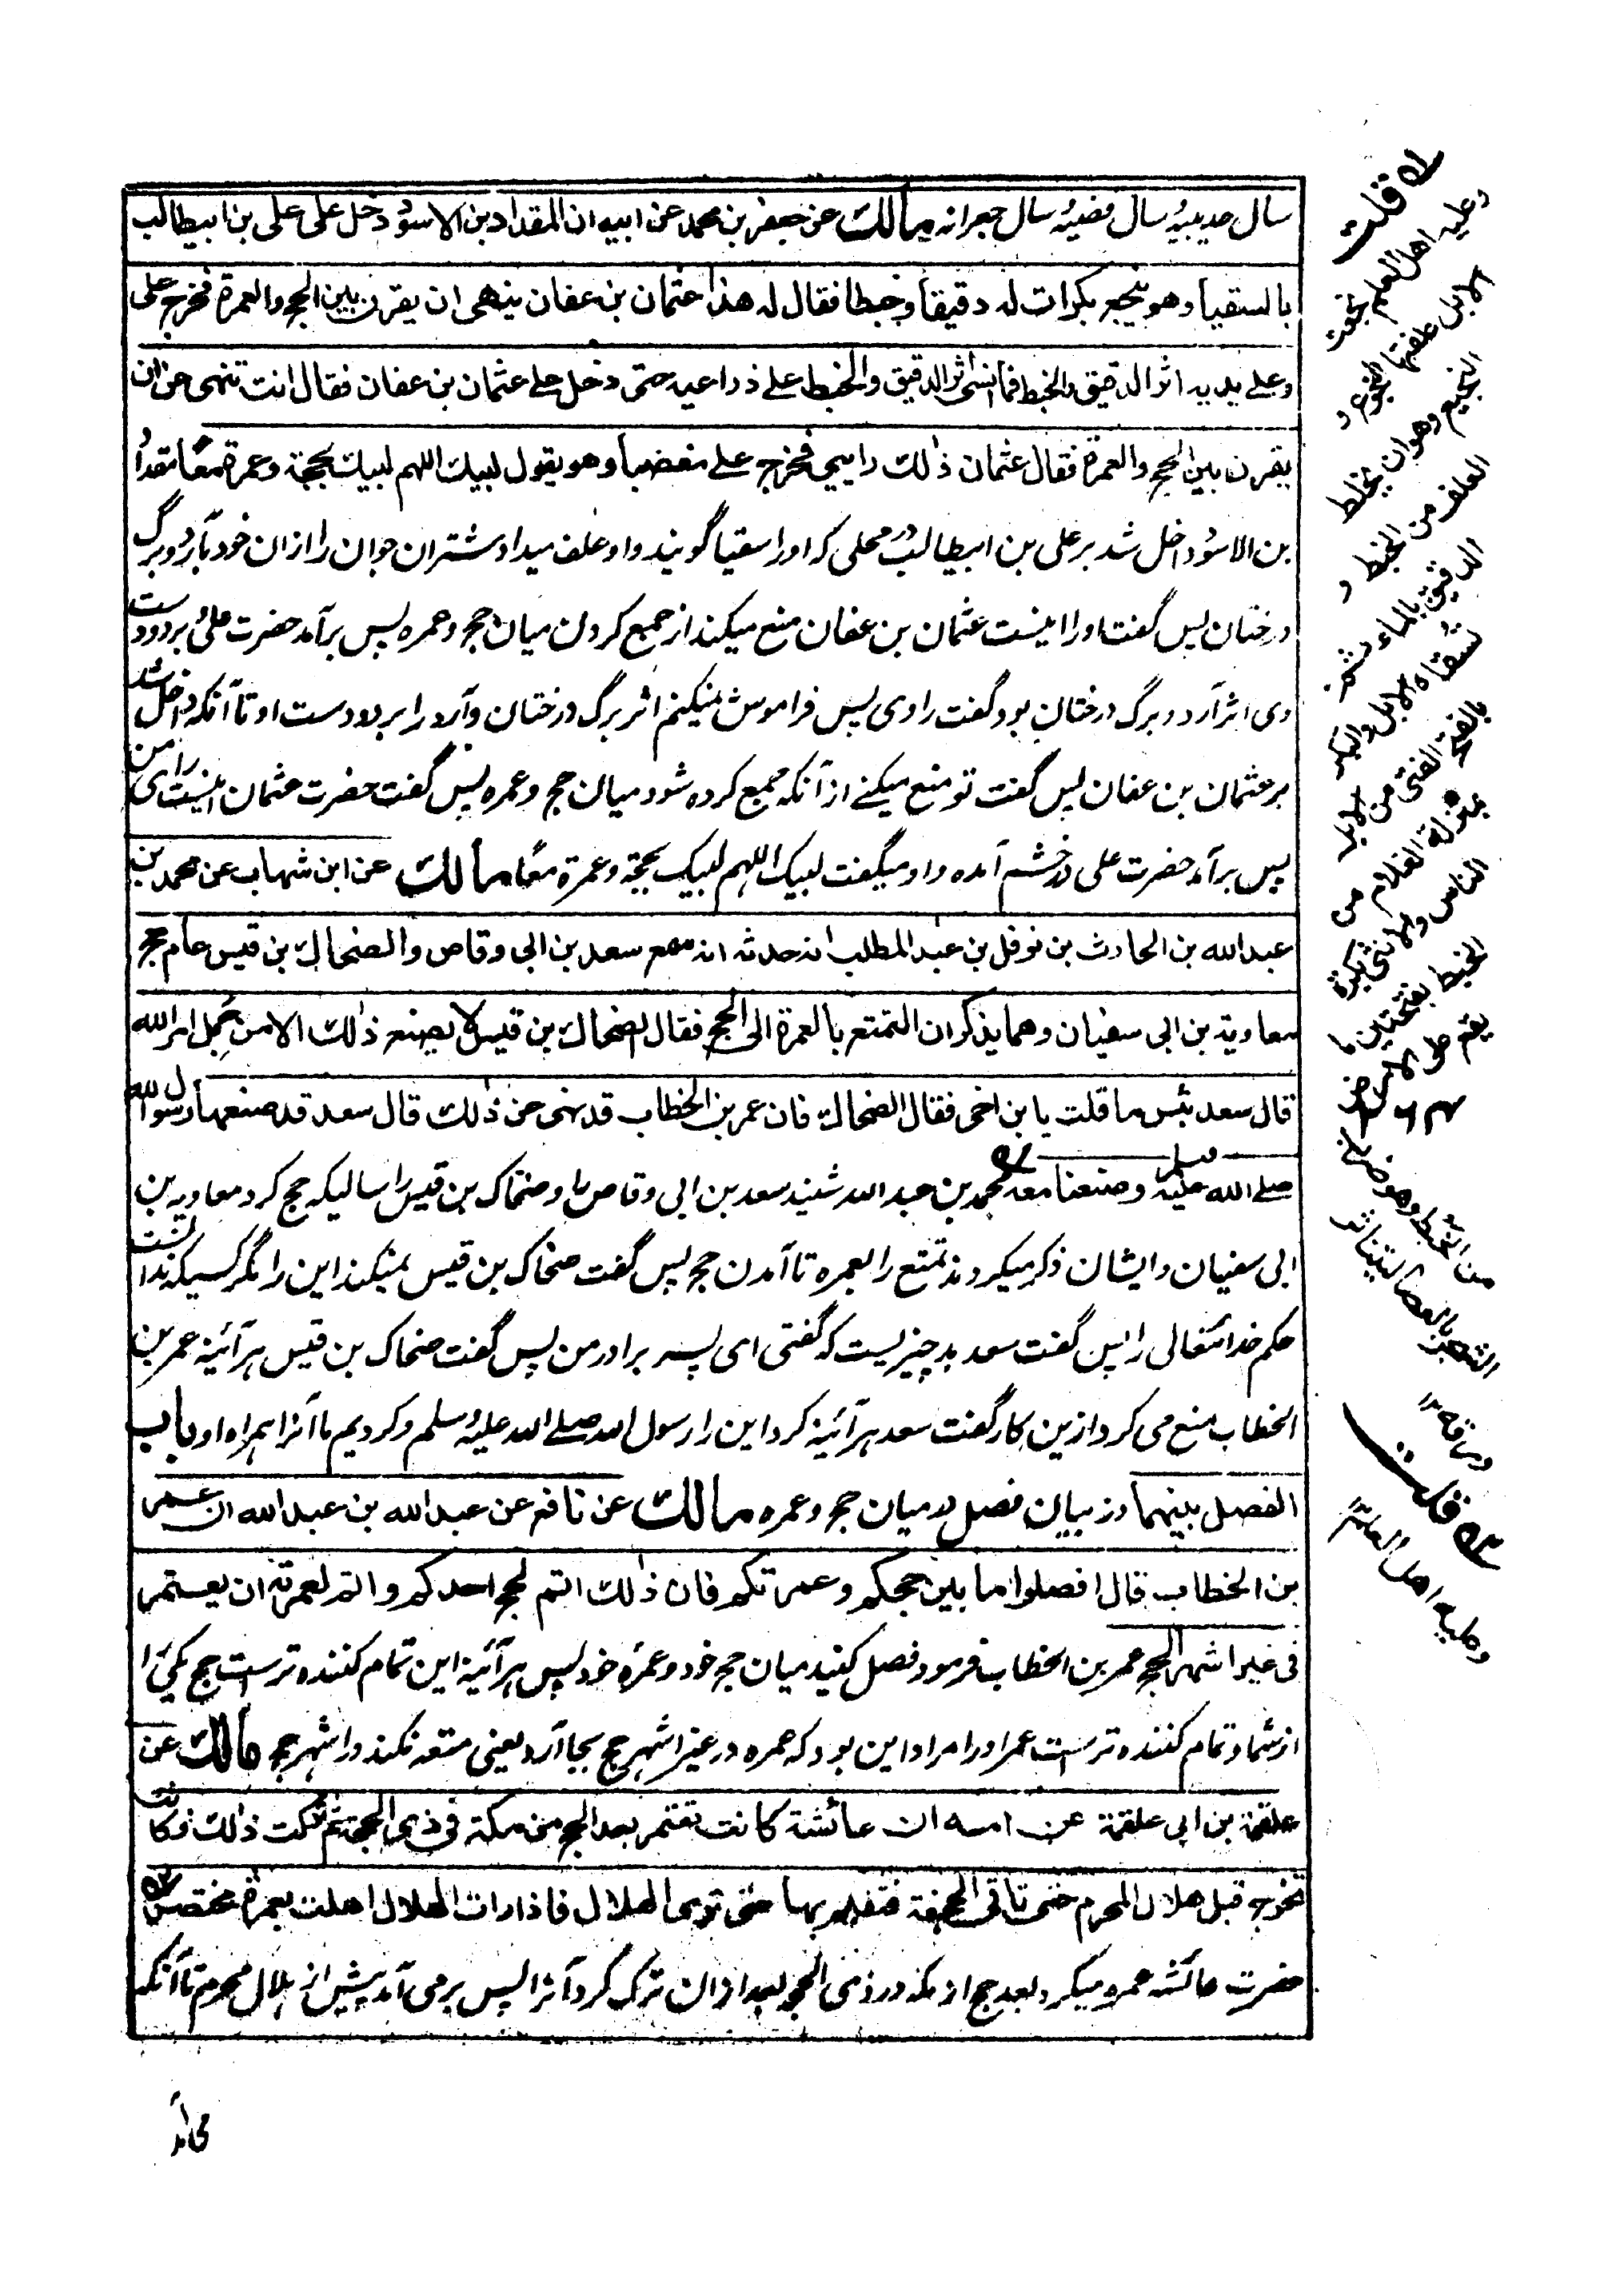 سال حدیبیہ سال قضیہ سال جعرانہ مالك عن جعفر بن محمد عن ابيه ان المقداد بن الاسود دخل على علي بن ابيطالب
بالسقيا وهو ينجع بكرات له دقيقا وخبطا فقال له هذا عثمان بن عفان ينهى ان يقرن بين الحج والعمرة فخرج علي
وعلى يديه اثر الدقيق والخبط فما انسى اثر الدقيق والخبط على ذراعيه حتى دخل على عثمان بن عفان فقال انت تنهى عن ان
يقرن بين الحج والعمرة فقال عثمان ذلك رايي فخرج علي مغضبا وهو يقول لبيك اللهم لبيك بحجة وعمرة معا مقداد
بن الاسود داخل شد بر علی بن ابیطالب در محلی که او را سقیا گویند و او علف میداد شتران جوان را از ان خود بآرد و برگ
درختان پس گفت او را اینست عثمان بن عفان منع میکند از جمع کردن میان حج و عمره پس برآمد حضرت علی و بر دو دست
وی اثر آرد و برگ درختان بود گفت راوی پس فراموش نمیکنم اثر برگ درختان و آرد را بر دو دست او تا آنکه داخل شد
بر عثمان بن عفان پس گفت تو منع میکنے از آنکه جمع کرده شود میان حج و عمره پس گفت حضرت عثمان اینست رای من
پس برآمد حضرت علی در خشم آمده و او میگفت لبیک اللهم لبیک بحجة وعمرة معا مالك عن ابن شهاب عن محمد بن
عبد الله بن الحارث بن نوفل بن عبد المطلب انه حدثه انه سمع سعد بن ابي وقاص والضحاك بن قيس عام حج
معاوية بن ابي سفيان وهما يذكران التمتع بالعمرة الى الحج فقال الضحاك بن قيس لا يصنع ذلك الا من جهل امر الله
قال سعد بئس ما قلت يا بن اخي فقال الضحاك فان عمر بن الخطاب قد نهى عن ذلك قال سعد قد صنعها رسول الله
صلے الله عليه وسلم وصنعنا معه محمد بن عبد الله شنید سعد بن ابی وقاص را و ضحاک بن قیس را سالیکه حج کرد معاویه بن
ابی سفیان و ایشان ذکر میکردند تمتع را بعمره تا آمدن حج پس گفت ضحاک بن قیس نمیکند این را مگر کسیکه ندانست
حکم خدائتعالی را پس گفت سعد بد چیزیست که گفتی ای پسر برادر من پس گفت ضحاک بن قیس هرآئینه عمر بن
الخطاب منع می کرد ازین کار گفت سعد هرآئینه کرد این را رسول الله صلے الله علیه وسلم و کردیم ما آنرا همراه او باب
الفصل بينهما در بیان فصل در میان حج و عمره مالك عن نافع عن عبد الله بن عبد الله ان عمر
بن الخطاب قال افصلوا ما بين حجكم وعمرتكم فان ذلك اتم لحج احدكم واتم لعمرته ان يعتمر
في غير اشهر الحج عمر بن الخطاب فرمود فصل کنید میان حج خود و عمره خود پس هرآئینه این تمام کننده ترست حج یکے را
از شما و تمام کننده ترست عمره او را مراد این بود که عمره در غیر اشهر حج بجا آرد یعنی متعه نکند در اشهر حج مالك عن
علقمة بن ابي علقمة عن امه ان عائشة كانت تعتمر بعد الحج من مكة في ذي الحجة ثم تركت ذلك فكانت
تخرج قبل هلال المحرم حتى تاتي الجحفة فتقيم بها حتى ترى الهلال فاذا رات الهلال اهلت بعمرة مختصر ۵۳
حضرت عائشه عمره میکرد بعد حج از مکه در ذی الحجه بعد ازان ترک کرد آنرا پس برمی آمد پیش از هلال محرم تا آنکه
می آمد
۵۱ قلت
وعليه اهل العلم نجعت
الابل علفتها النجوع و
النجيع وهو ان يخلط
العلف من الخبط و
الدقيق بالماء ثم
تسقاه الابل والبكر
بالفتح الفتى من الابل
بمنزلة الغلام من
الناس والانثى بكرة
الخبط بفتحتين ما
يقع على الارض
من الخبط وهو ضرب
الشجر بالعصا ليتناثر
ورقها
۵۲ قلت
وعليه اهل العلم